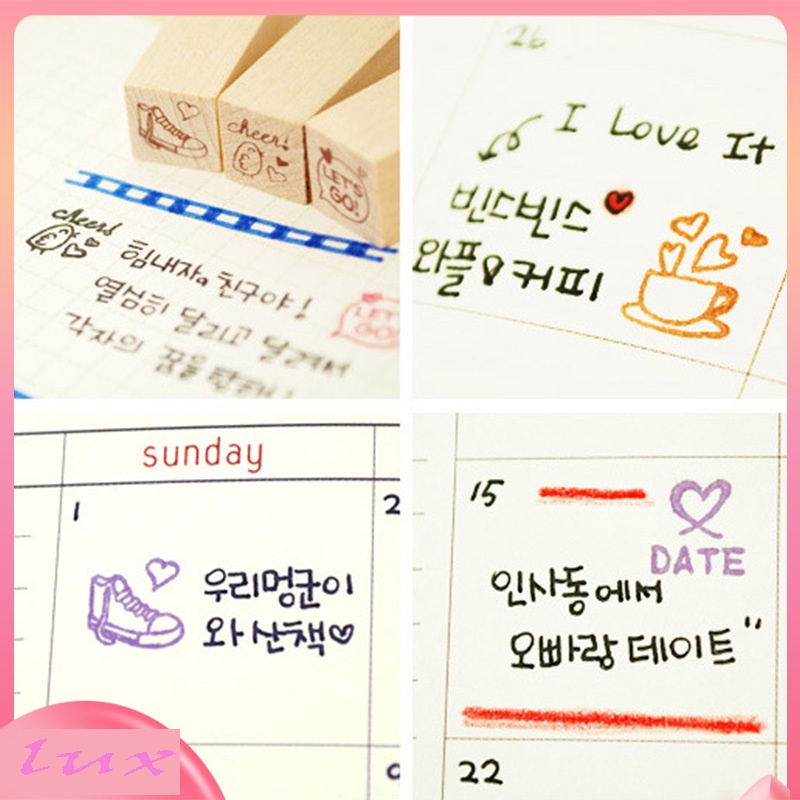 cheers
LET'S
GO!
cheers
힘내자. 친구야!
LET'S
GO!
열심히 달리고 달려서
각자의 꿈을
26
I Love It
빈스빈스
와플&커피
sunday
1
2
우리멍군이
와 산책
15
DATE
인사동에서
오빠랑 데이트"
22
lux